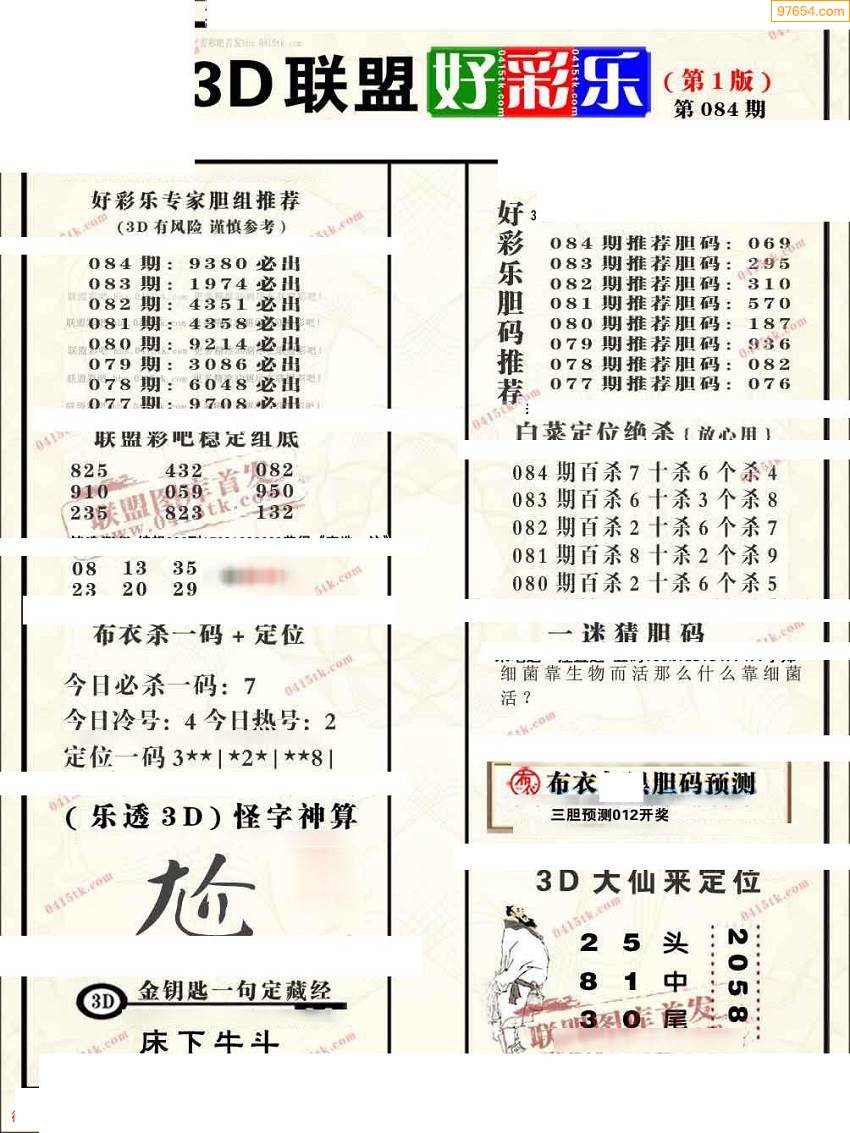 97654.com
3D联盟好彩乐
(第1版)
第084期
好彩乐专家胆组推荐
(3D有风险 谨慎参考)
084期: 9380必出
083期: 1974必出
082期: 4351必出
081期: 4358必出
080期: 9214必出
079期: 3086必出
078期: 6048必出
077期: 9708必出
联盟彩吧稳定组底
825 432 082
910 059 950
235 823 132
08 13 35
23 20 29
布衣杀一码+定位
今日必杀一码: 7
今日冷号: 4 今日热号: 2
定位一码 3**|*2*|**8|
(乐透3D)怪字神算
尬
3D 金钥匙一句定藏经
床下牛斗
好彩乐胆码推荐
084期推荐胆码: 069
083期推荐胆码: 295
082期推荐胆码: 310
081期推荐胆码: 570
080期推荐胆码: 187
079期推荐胆码: 936
078期推荐胆码: 082
077期推荐胆码: 076
白菜定位绝杀{放心用}
084期百杀7十杀6个杀4
083期百杀6十杀3个杀8
082期百杀2十杀6个杀7
081期百杀8十杀2个杀9
080期百杀2十杀6个杀5
一迷猜胆码
细菌靠生物而活那么什么靠细菌
活?
布衣 胆码预测
三胆预测012开奖
3D大仙来定位
2 5 头
8 1 中
3 0 尾
2058
联盟图库首发
www.0415tk.com
联盟图库首发
0415tk.com